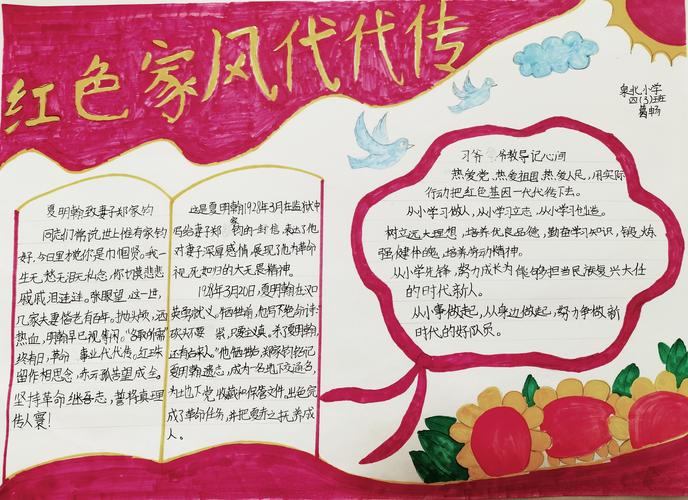 红色家风代代传
泉北小学
四(3)班
葛畅
夏明翰致妻子郑家钧
同志们常说世上惟有家钧
好,今日里才觉你是巾帼贤。我一
生无愁无泪无私念,你切莫悲悲
戚戚泪涟涟。张眼望,这一连,
几家夫妻偕老有百年。抛头颅,洒
热血,明翰早已视等闲。"各取所需"
终有日,革命事业代代传。红珠
留作相思念,赤云孤苦望成全。
坚持革命继吾志,誓将真理
传人寰!
这是夏明翰1928年3月在监狱中
写给妻子郑家钧的一封信,表达了他
对妻子深厚感情,展现了他为革命
视死如归的大无畏精神。
1928年3月20日,夏明翰在汉口
英勇就义。牺牲前,他写下绝命诗:
砍头不要紧,只要主义真。杀了夏明翰,
还有后来人。"他牺牲后,郑家钧铭记
夏明翰遗志,成为一名地下交通员,
为地下党收藏和保管文件,出色完
成了革命任务,并把夏赤云抚养成
人。
习爷爷教导记心间
热爱党、热爱祖国、热爱人民,用实际
行动把红色基因一代代传下去。
从小学习做人,从小学习立志,从小学习创造。
树立远大理想,培养优良品德,勤奋学习知识,锻炼
强健体魄,培养劳动精神。
从小学先锋,努力成长为能够担当民族复兴大任
的时代新人。
从小事做起,从身边做起,努力争做新
时代的好队员。